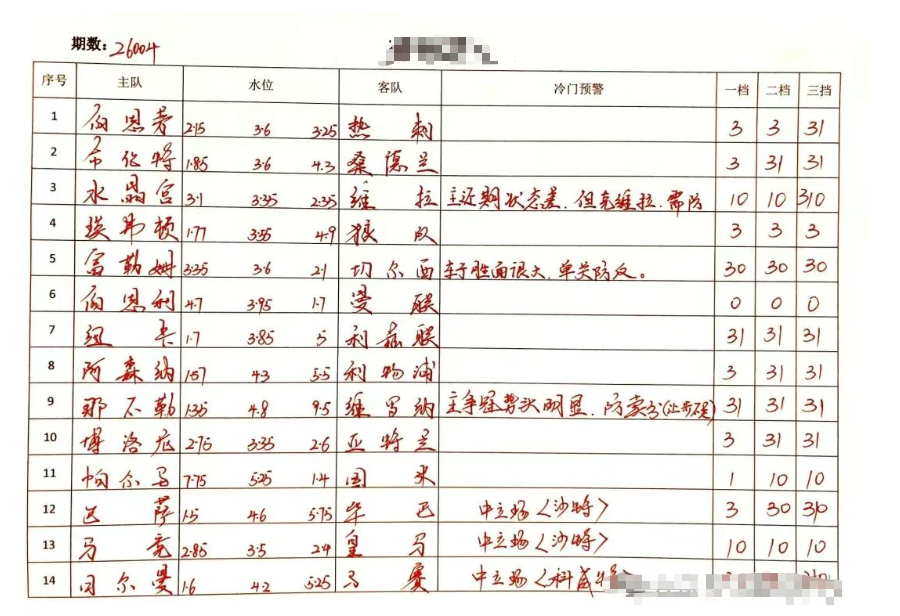 期数: 26004
序号 主队 水位 客队 冷门预警 一档 二档 三挡
1 伯恩茅 2.15 3.6 3.25 热刺 3 3 31
2 布伦特 1.85 3.6 4.3 桑德兰 3 31 31
3 水晶宫 3.1 3.35 2.35 维拉 主近期状态差,但克维拉,需防 10 10 310
4 埃弗顿 1.77 3.55 4.9 狼队 3 3 3
5 富勒姆 3.35 3.6 2.1 切尔西 车子胜面很大,单关防反。 30 30 30
6 伯恩利 4.7 3.95 1.7 曼联 0 0 0
7 纽卡 1.7 3.85 5 利兹联 31 31 31
8 阿森纳 1.57 4.3 5.5 利物浦 3 31 31
9 那不勒 1.35 4.8 9.5 维罗纳 主争冠势头明显,防蒙分 31 31 31
10 博洛尼 2.75 3.35 2.6 亚特兰 3 31 31
11 帕尔马 7.75 5.25 1.4 国米 1 10 10
12 巴萨 1.5 4.6 5.75 毕巴 中立场〈沙特〉 3 30 310
13 马竞 2.85 3.5 2.4 皇马 中立场〈沙特〉 10 10 10
14 日尔曼 1.6 4.2 5.25 马赛 中立场〈科威特